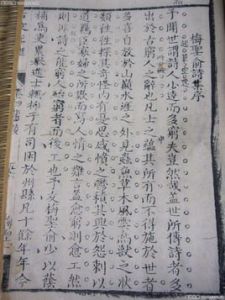 梅聖俞詩集序
予聞世謂詩人少達而多窮夫豈然哉蓋世所傳詩者多
出於古窮人之辭也凡士之蘊其所有而不得施於世者
多喜自放於山巔水涯之外見蟲魚草木風雲鳥獸之狀
類往往探其奇怪內有憂思感憤之鬱積其興於怨刺以
道羈臣寡婦之所歎而寫人情之難言蓋愈窮則愈工然
則非詩之能窮人殆窮者而後工也予友梅聖俞少以蔭
補為吏累舉進士輒抑於有司困於州縣凡十餘年年今